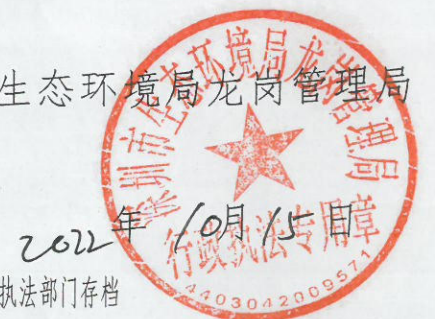 生态环境局龙岗管理局
深圳市生态环境局龙岗管理局
行政执法专用章
4403042009571
2022年10月15日
执法部门存档